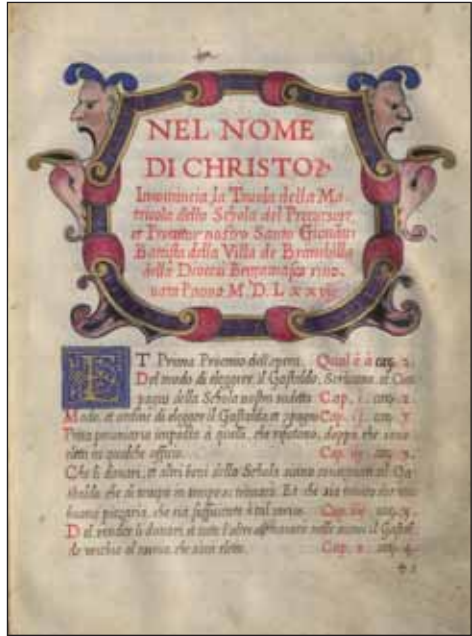 NEL NOME
DI CHRISTO
Incomincia la Tavola della Ma-
tricola della Schola del Precursore,
et Protettor nostro Santo Giovanni
Battista della Villa de Brambilla
della Diocesi Bergamasca rino-
vata l'anno M.D.LXX
ET Prima Proemio dell'opera. Qual è à car. 2.
Del modo di eleggere il Gastaldo, Scrivano, et Com
pagni della Schola nostri sudetta Cap. i. car. 2.
Modo, et ordine di eleggere il Gastaldo et compagni Cap. ij. car. 3.
Pena pecuniaria à quelli, che refutano, doppo che sono
eletti in qualche officio. Cap. iij. car. 3.
Che li danari, et altri beni della Schola siano consegnati al Ga-
staldo che di tempo in tempo si trovarà. Et che sia tenuto dar una
buona piezaria, che sia sufficiente à tal carico. Cap. iiij. car. 3.
Del render li danari, et tutte l'altre nelle mani il Gastal
do vecchio al nuovo, che sarà eletto. Cap. v. car. 4.